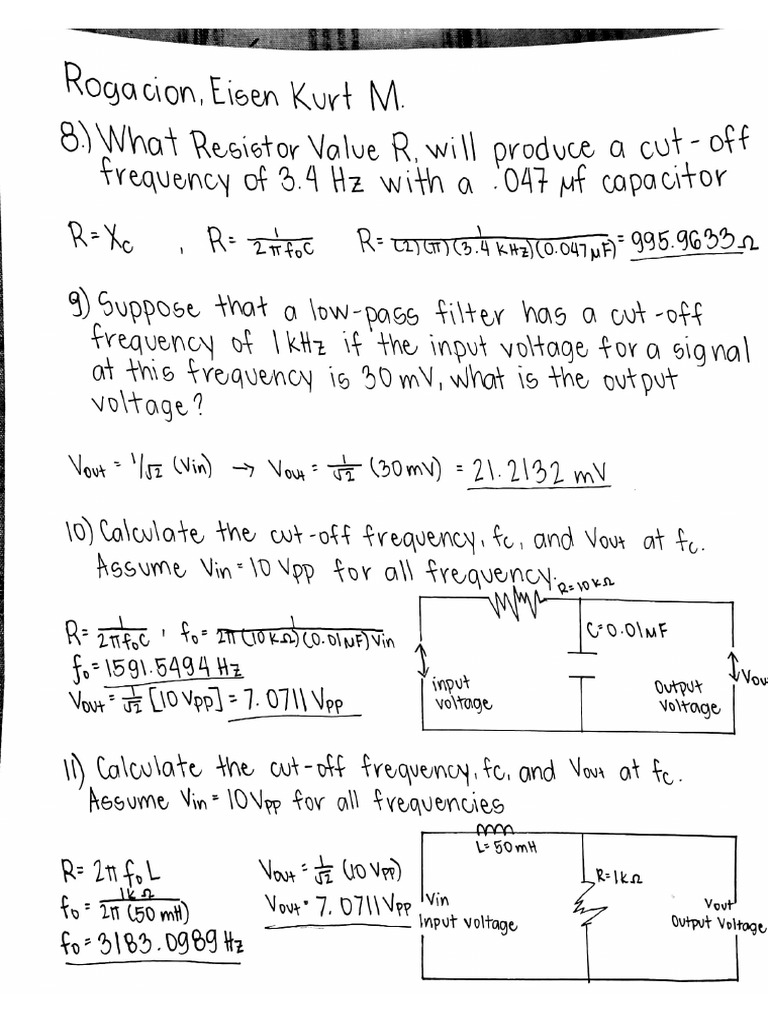 Rogacion, Eisen Kurt M.
8.) What Resistor Value R, will produce a cut-off
frequency of 3.4 Hz with a .047 μf capacitor
R = Xc , R = 1/2πf₀C R = 1/(2)(π)(3.4 kHz)(0.047μF) = 995.9633 Ω
9) Suppose that a low-pass filter has a cut-off
frequency of 1kHz if the input voltage for a signal
at this frequency is 30 mV, what is the output
voltage?
Vout = 1/√2 (Vin) → Vout = 1/√2 (30mV) = 21.2132 mV
10) Calculate the cut-off frequency, fc, and Vout at fc.
Assume Vin = 10 Vpp for all frequency.
R=10kΩ
R = 1/2πf₀C , f₀ = 1/2π(10kΩ)(0.01μF)Vin
f₀ = 1591.5494 Hz
Vout = 1/√2 [10 Vpp] = 7.0711 Vpp
C=0.01μF
input
voltage
Output
Voltage
Vou
11) Calculate the cut-off frequency, fc, and Vout at fc.
Assume Vin = 10Vpp for all frequencies
R = 2π f₀ L
f₀ = 1kΩ/2π(50 mH)
f₀ = 3183.0989 Hz
Vout = 1/√2 (10 Vpp)
Vout = 7.0711 Vpp
L=50mH
R=1kΩ
Vin
Input voltage
Vout
Output Voltage